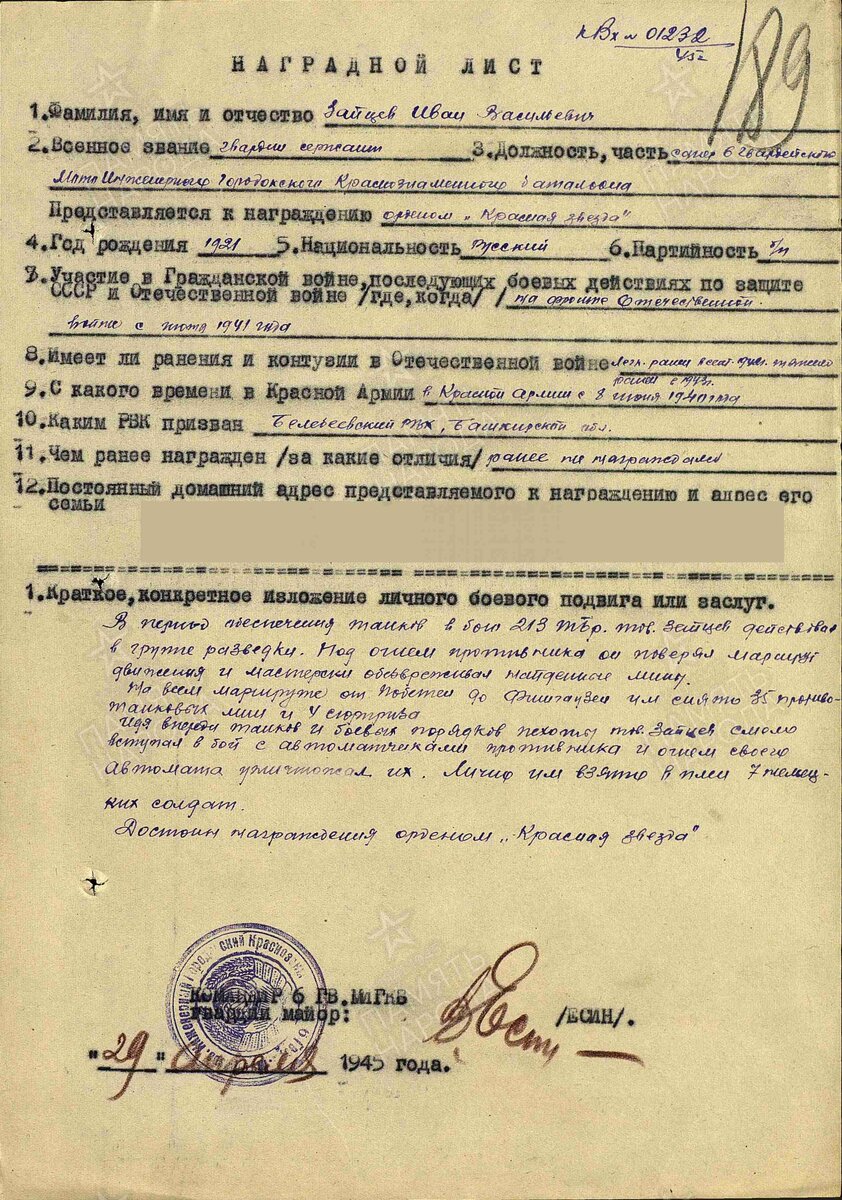 Вх № 01232
45г
189
НАГРАДНОЙ ЛИСТ
1.Фамилия, имя и отчество Зайцев Иван Васильевич
2.Военное звание гвардии сержант 3.Должность, часть сапер 6 гвардейского
Мото Инженерного Городокского Краснознаменного батальона
Представляется к награждению орденом „Красная звезда"
4.Год рождения 1921 5.Национальность Русский 6.Партийность б/п
7.Участие в Гражданской войне, последующих боевых действиях по защите
СССР и Отечественной войне /где, когда/ на фронте Отечественной
войне с июня 1941 года
8.Имеет ли ранения и контузии в Отечественной войне легк. ранен тяжело
ранен с 1943г.
9.С какого времени в Красной Армии в Красной армии с 8 июня 1940 года
10.Каким РВК призван Белебеевский РВК, Башкирской обл.
11.Чем ранее награжден /за какие отличия/ ранее не награждался
12.Постоянный домашний адрес представляемого к награждению и адрес его
семьи
1.Краткое, конкретное изложение личного боевого подвига или заслуг.
В период обеспечения танков в бою 213 ТБр. тов. Зайцев действовал
в группе разведки. Под огнем противника он поверял маршрут
движения и мастерски обезвреживал найденные мины.
На всем маршруте от до Фишгаузен им снято 35 противо-
танковых мин и 4 сюрприза
Идя впереди танков и боевых порядков пехоты тов. Зайцев смело
вступал в бой с автоматчиками противника и огнем своего
автомата уничтожал их. Лично им взято в плен 7 немец-
ких солдат.
Достоин награждения орденом „Красная звезда"
КОМАНДИР 6 ГВ.МИГКБ
гвардии майор: /ЕСИН/.
"29" апреля 1945 года.